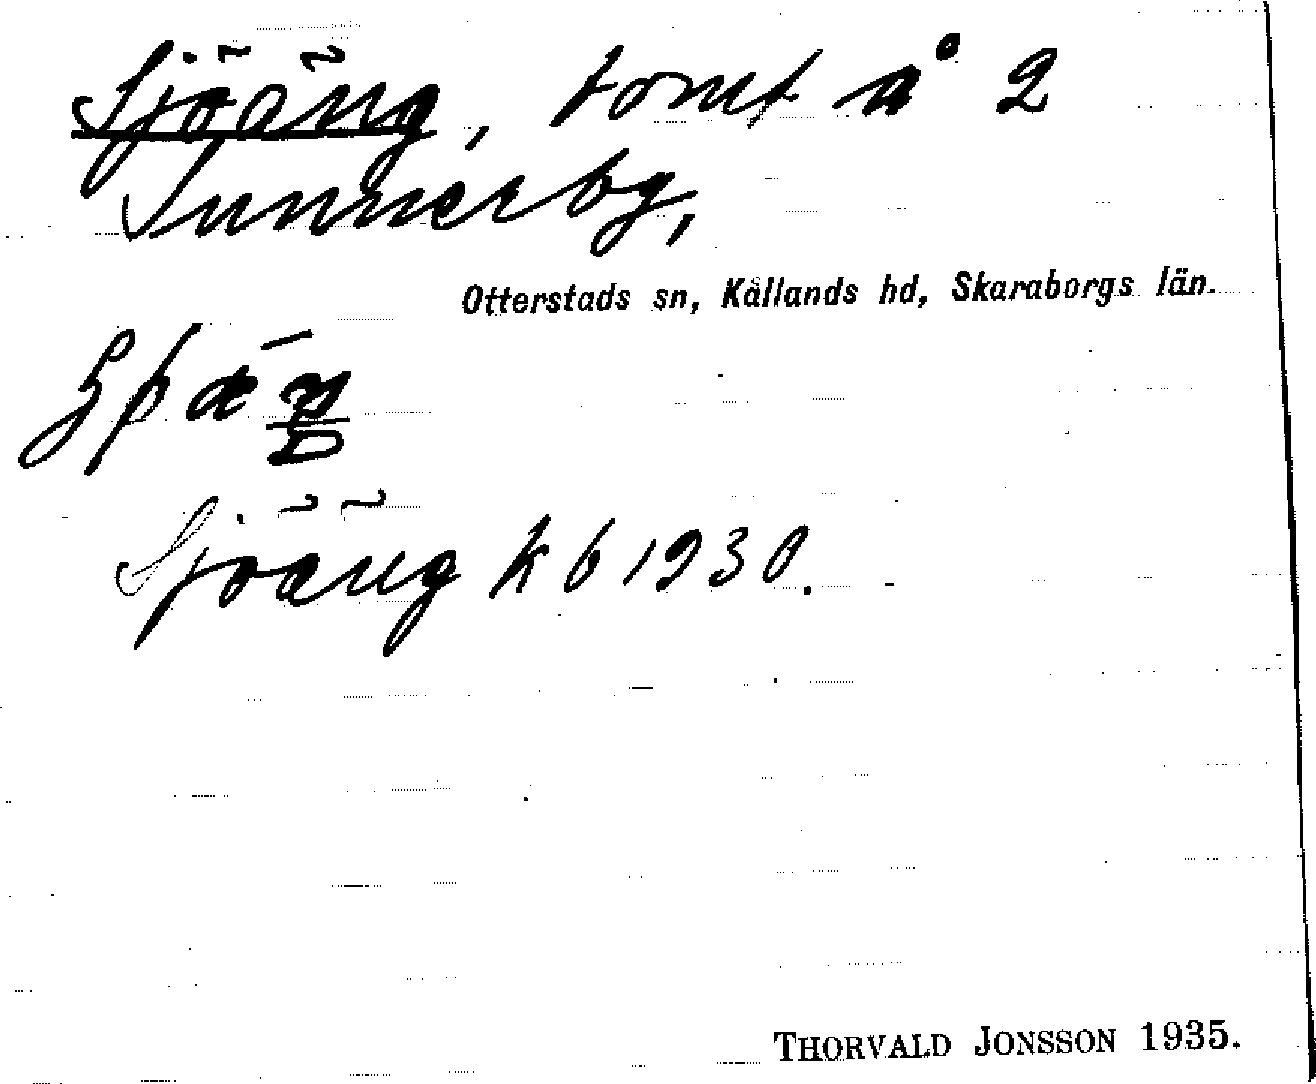 Sjöäng, tomt å 2
Sunnerby,
Otterstads sn, Kållands hd, Skaraborgs län.
Sjöäng kb 1930.
THORVALD JONSSON 1935.